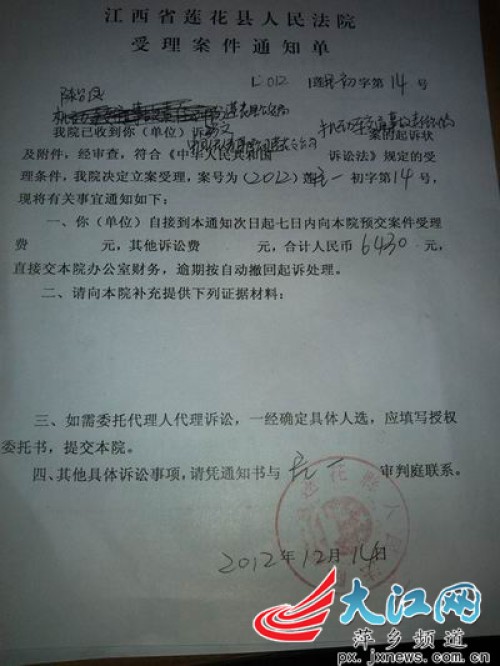 江西省莲花县人民法院
受理案件通知单
(2012)莲民一初字第14号
我院已收到你（单位）诉 案的起诉状
及附件，经审查，符合《中华人民共和国 诉讼法》规定的受
理条件，我院决定立案受理，案号为(2012)莲民一初字第14号，
现将有关事宜通知如下：
一、你（单位）自接到本通知次日起七日内向本院预交案件受理
费 元，其他诉讼费 元，合计人民币6430元，
直接交本院办公室财务，逾期按自动撤回起诉处理。
二、请向本院补充提供下列证据材料：
三、如需委托代理人代理诉讼，一经确定具体人选，应填写授权
委托书，提交本院。
四、其他具体诉讼事项，请凭通知书与民一审判庭联系。
2012年12月14日
大江网
萍乡频道
px.jxnews.com.cn